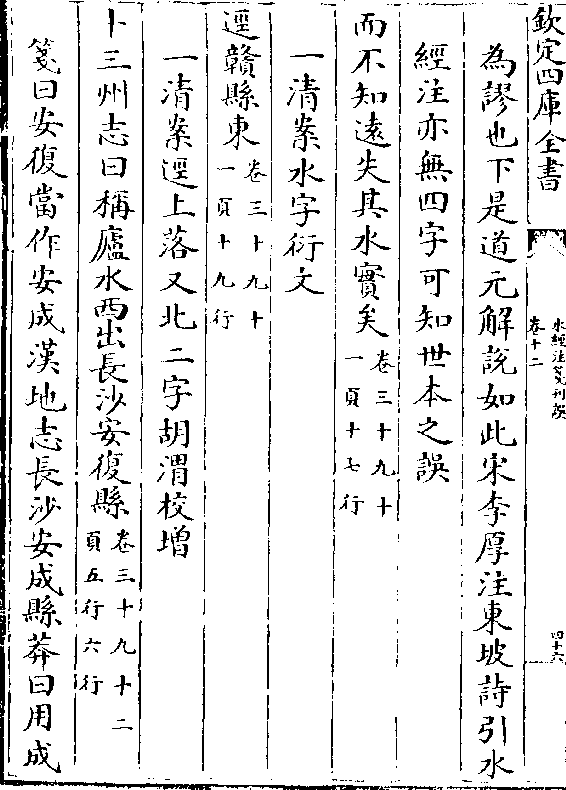 欽定四庫全書
水經注箋刊誤
卷十二
四十六
為謬也下是道元解說如此宋李厚注東坡詩引水
經注亦無四字可知世本之誤
而不知遠失其水實矣卷三十九十一頁十七行
一清案水字衍文
逕贛縣東卷三十九十一頁十九行
一清案逕上落又北二字胡渭校增
十三州志曰稱廬水西出長沙安復縣卷三十九十二頁五行六行
箋曰安復當作安成漢地志長沙安成縣莽曰用成